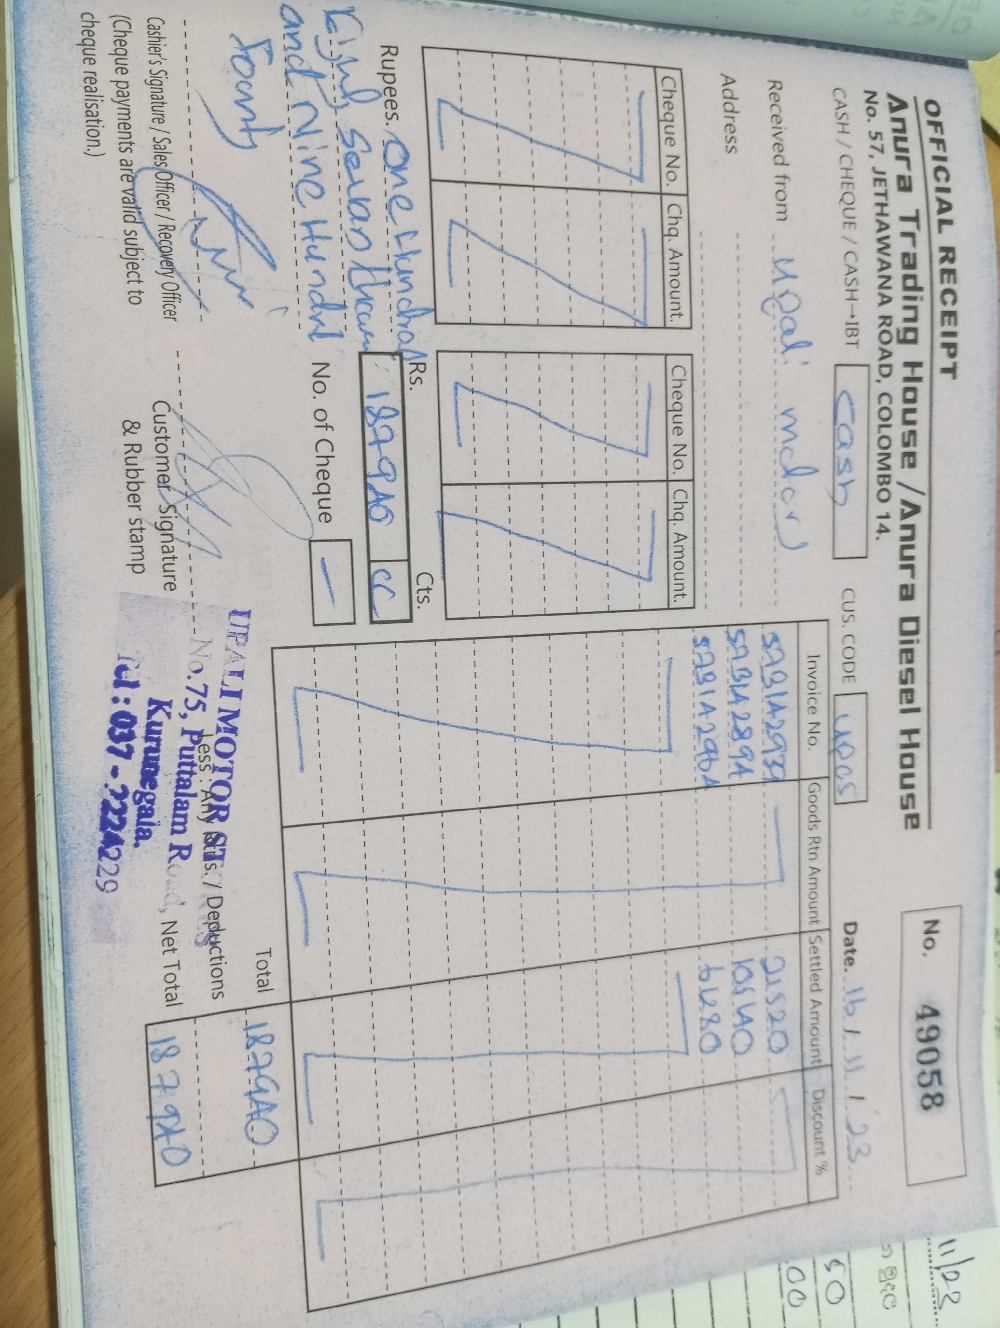 OFFICIAL RECEIPT
Anura Trading House / Anura Diesel House
No. 57, JETHAWANA ROAD, COLOMBO 14.
No. 49058
CASH / CHEQUE / CASH→IBT Cash
CUS. CODE
Date. 16 / 11 / 23
Received from Upali
Address
Cheque No. Chq. Amount. Cheque No. Chq. Amount.
Invoice No. Goods Rtn Amount Settled Amount Discount %
21520
105140
61280
Rupees. One Hundred
and Nine Hundred
Rs. Cts.
187940
No. of Cheque
Total 187940
Less : Any Rtns. / Deductions
Net Total 187940
Cashier's Signature / Sales Officer / Recovery Officer
(Cheque payments are valid subject to
cheque realisation.)
Customer Signature
& Rubber stamp
UPALI MOTOR
No.75, Puttalam Road,
Kurunegala.
Tel : 037 - 2224229
11/23
50
00